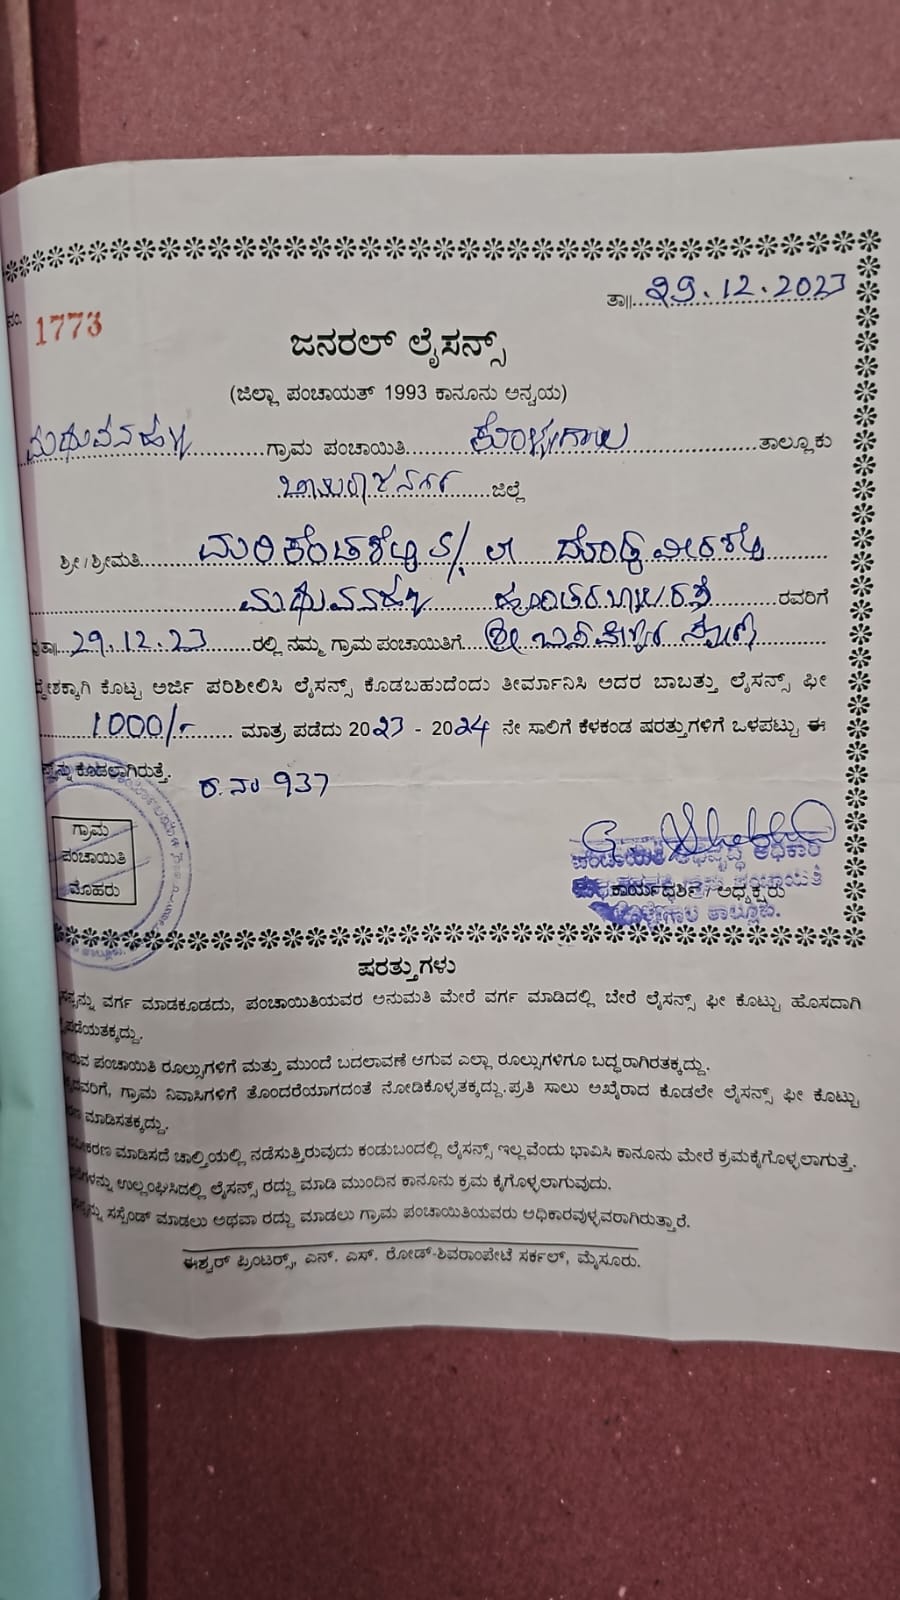 ತಾ॥ 29.12.2023
ನಂ. 1773
ಜನರಲ್ ಲೈಸನ್ಸ್
(ಜಿಲ್ಲಾ ಪಂಚಾಯತ್ 1993 ಕಾನೂನು ಅನ್ವಯ)
ಮಧುವನಹಳ್ಳಿ ಗ್ರಾಮ ಪಂಚಾಯಿತಿ ಕೊಳ್ಳೇಗಾಲ ತಾಲ್ಲೂಕು
ಚಾಮರಾಜನಗರ ಜಿಲ್ಲೆ
ಶ್ರೀ/ಶ್ರೀಮತಿ ದೊಡ್ಡವೀರಶೆಟ್ಟಿ
ಮಧುವನಹಳ್ಳಿ ರವರಿಗೆ
ತಾ॥ 29.12.23 ರಲ್ಲಿ ನಮ್ಮ ಗ್ರಾಮ ಪಂಚಾಯಿತಿಗೆ ಶ್ರೀ
ಕೊಟ್ಟ ಅರ್ಜಿ ಪರಿಶೀಲಿಸಿ ಲೈಸನ್ಸ್ ಕೊಡಬಹುದೆಂದು ತೀರ್ಮಾನಿಸಿ ಅದರ ಬಾಬತ್ತು ಲೈಸನ್ಸ್ ಫೀ
1000/- ಮಾತ್ರ ಪಡೆದು 2023 - 2024 ನೇ ಸಾಲಿಗೆ ಕೆಳಕಂಡ ಷರತ್ತುಗಳಿಗೆ ಒಳಪಟ್ಟು ಈ
ಕೊಡಲ್ಪಾಗಿರುತ್ತೆ.
ರ.ನಂ 937
ಗ್ರಾಮ
ಪಂಚಾಯಿತಿ
ಮೊಹರು
ಪಂಚಾಯಿತಿ ಅಭಿವೃದ್ಧಿ ಅಧಿಕಾರಿ
ಕಾರ್ಯದರ್ಶಿ / ಅಧ್ಯಕ್ಷರು
ಕೊಳ್ಳೇಗಾಲ ತಾಲ್ಲೂಕು.
ಷರತ್ತುಗಳು
ವರ್ಗ ಮಾಡಕೂಡದು, ಪಂಚಾಯಿತಿಯವರ ಅನುಮತಿ ಮೇರೆ ವರ್ಗ ಮಾಡಿದಲ್ಲಿ ಬೇರೆ ಲೈಸನ್ಸ್ ಫೀ ಕೊಟ್ಟು ಹೊಸದಾಗಿ
ಪಡೆಯತಕ್ಕದ್ದು.
ಪಂಚಾಯಿತಿ ರೂಲ್ಸುಗಳಿಗೆ ಮತ್ತು ಮುಂದೆ ಬದಲಾವಣೆ ಆಗುವ ಎಲ್ಲಾ ರೂಲ್ಸುಗಳಿಗೂ ಬದ್ಧರಾಗಿರತಕ್ಕದ್ದು.
ಗ್ರಾಮ ನಿವಾಸಿಗಳಿಗೆ ತೊಂದರೆಯಾಗದಂತೆ ನೋಡಿಕೊಳ್ಳತಕ್ಕದ್ದು. ಪ್ರತಿ ಸಾಲು ಅಖೈರಾದ ಕೊಡಲೇ ಲೈಸನ್ಸ್ ಫೀ ಕೊಟ್ಟು
ಮಾಡಿಸತಕ್ಕದ್ದು.
ಮಾಡಿಸದೆ ಚಾಲ್ತಿಯಲ್ಲಿ ನಡೆಸುತ್ತಿರುವುದು ಕಂಡುಬಂದಲ್ಲಿ ಲೈಸನ್ಸ್ ಇಲ್ಲವೆಂದು ಭಾವಿಸಿ ಕಾನೂನು ಮೇರೆ ಕ್ರಮಕೈಗೊಳ್ಳಲಾಗುತ್ತೆ.
ಉಲ್ಲಂಘಿಸಿದಲ್ಲಿ ಲೈಸನ್ಸ್ ರದ್ದು ಮಾಡಿ ಮುಂದಿನ ಕಾನೂನು ಕ್ರಮ ಕೈಗೊಳ್ಳಲಾಗುವುದು.
ಸಸ್ಪೆಂಡ್ ಮಾಡಲು ಅಥವಾ ರದ್ದು ಮಾಡಲು ಗ್ರಾಮ ಪಂಚಾಯಿತಿಯವರು ಅಧಿಕಾರವುಳ್ಳವರಾಗಿರುತ್ತಾರೆ.
ಈಶ್ವರ್ ಪ್ರಿಂಟರ್ಸ್, ಎನ್. ಎಸ್. ರೋಡ್-ಶಿವರಾಂಪೇಟೆ ಸರ್ಕಲ್, ಮೈಸೂರು.